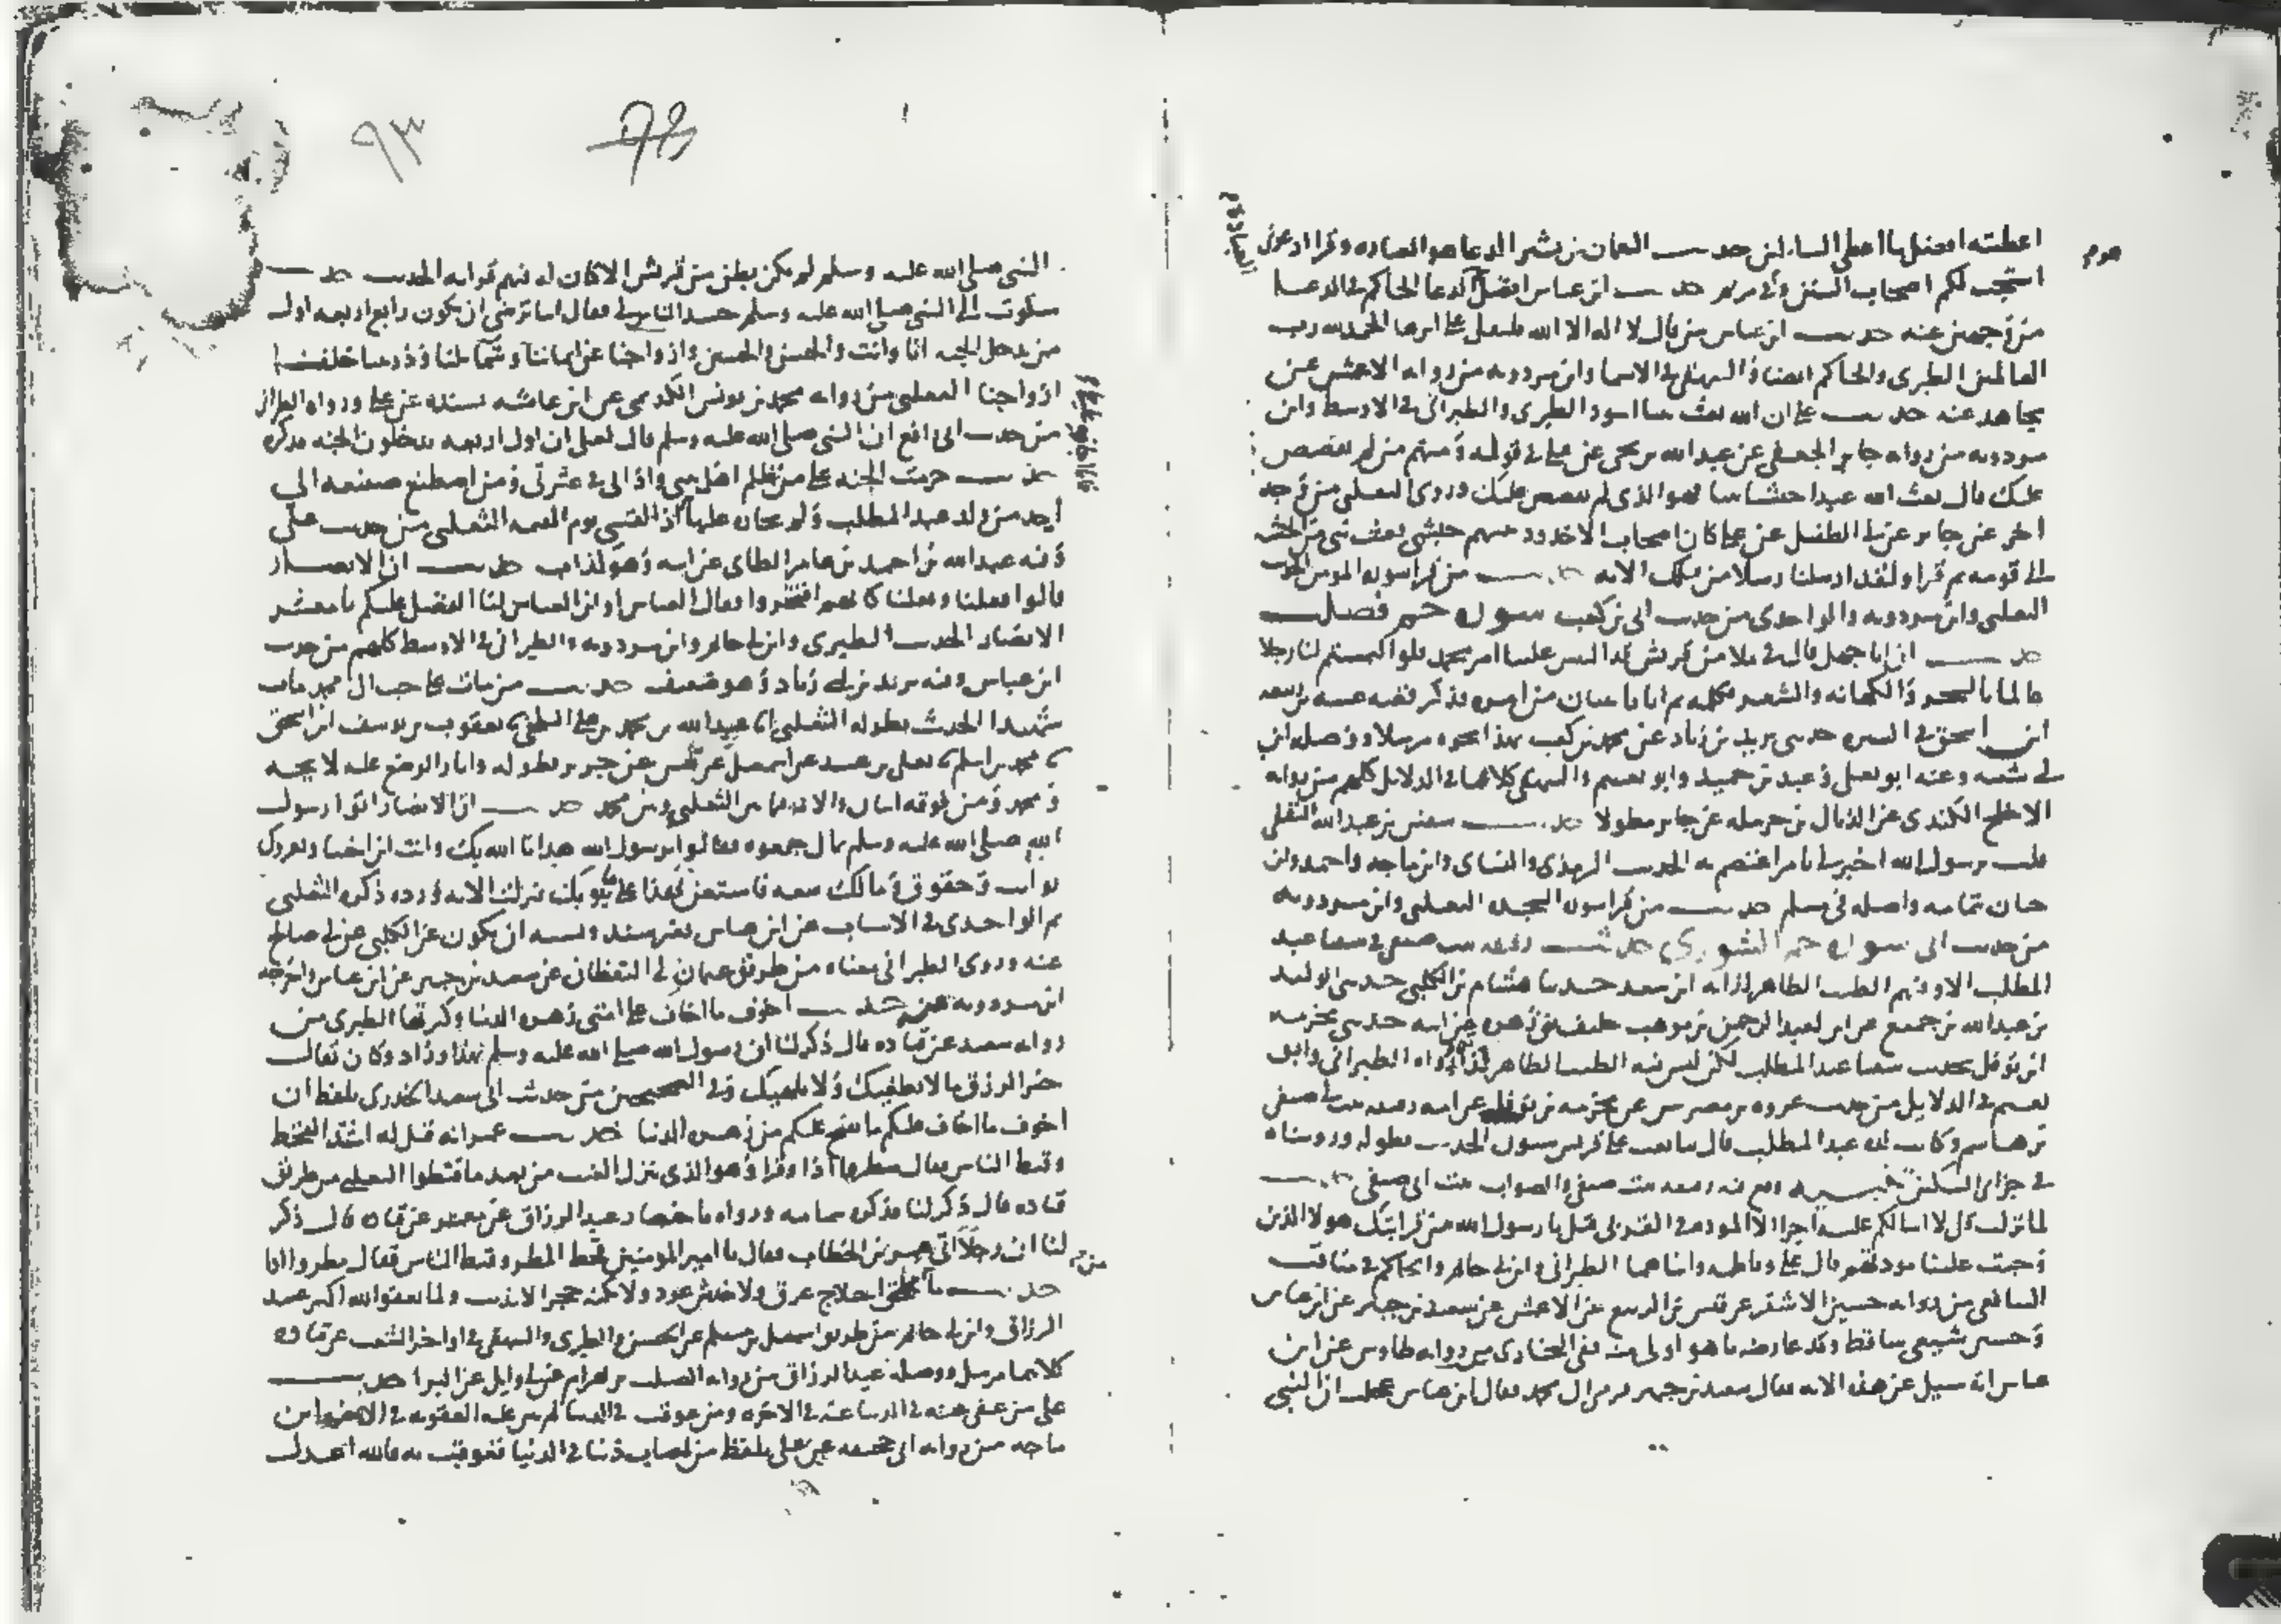 اعطيته افضل ما اعطي السائلين حديث النعمان بن بشير الدعا هو العباده وقرا ادعوني
استجب لكم اصحاب السنن حديث ابن عباس افضل الدعا الحاكم في الدعا
من وجهين عنه حديث ابن عباس من قال لا اله الا الله فليقل على اثرها الحمد لله رب
العالمين الطبري والحاكم ايضا والبيهقي في الاسما وابن مردويه من روايه الاعمش عن
مجاهد عنه حديث علي ان الله بعث نبيا اسود الطبري والطبراني في الاوسط وابن
مردويه من روايه جابر الجعفي عن عبد الله بن يحيى عن علي في قوله ومنهم من لم نقصص
عليك قال بعث الله عبدا حبشيا نبيا فهو الذي لم نقصص عليك وروى الثعلبي من وجه
اخر عن جابر عن ابي الطفيل عن علي كان اصحاب الاخدود نبيهم حبشي بعث نبي من الحبشه
الى قومه ثم قرا ولقد ارسلنا رسلا من قبلك الايه حديث من قرا سوره المومن الحديث
الثعلبي وابن مردويه والواحدي من حديث ابي بن كعب سوره حم فصلت
حديث ان ابا جهل قال في ملا من قريش قد التبس علينا امر محمد فلو التمستم لنا رجلا
عالما بالسحر والكهانه والشعر فكلمه ثم اتانا ببيان من امره فذكر قصه عتبه بن ربيعه
ابن اسحق في السيره حدثني يزيد بن زياد عن محمد بن كعب بهذا نحوه مرسلا ووصله ابن
ابي شيبه وعنه ابو يعلى وعبد بن حميد وابو نعيم والبيهقي كلاهما في الدلائل كلهم من روايه
الاجلح الكندي عن الذيال بن حرمله عن جابر مطولا حديث سفين بن عبد الله الثقفي
قلت يرسول الله اخبرني بامر اعتصم به الحديث الترمذي والنساي وابن ماجه واحمد وابن
حبان بتمامه واصله في مسلم حديث من قرا سوره السجده الثعلبي وابن مردويه
من حديث ابي سوره حم الشورى حديث رقيقه بنت صيفي في سقيا عبد
المطلب الا وفيهم الطيب الطاهر لذاته ابن سعد حدثنا هشام بن الكلبي حدثني الوليد
بن عبد الله بن جميع عن ابن لعبد الرحمن بن موهب حليف بني زهره عن ابيه حدثني مخرمه
ابن نوفل بحديث سقيا عبد المطلب لكن ليس فيه الطيب الطاهر لذاته رواه الطبراني وابو
نعيم في الدلايل من حديث عروه بن مضرس عن مخرمه بن نوفل عن امه رقيقه بنت ابي صيفي
بن هاشم وكانت لده عبد المطلب قال تتابعت على قريش سنون الحديث بطوله ورويناه
في جزء ابي السكين تنبيه وقع فيه رقيقه بنت صيفي والصواب بنت ابي صيفي حديث
لما نزلت قل لا اسالكم عليه اجرا الا الموده في القربى قيل يا رسول الله من قرابتك هولا الذين
وجبت علينا مودتهم قال علي وفاطمه وابناهما الطبراني وابن ابي حاتم والحاكم في مناقب
الشافعي من روايه حسين الاشقر عن قيس بن الربيع عن الاعمش عن سعيد بن جبير عن ابن عباس
وحسين شيعي ساقط وقد عارضه ما هو اولى منه ففي البخاري من روايه طاوس عن ابن
عباس انه سيل عن هذه الايه فقال سعيد بن جبير قربى ال محمد فقال ابن عباس عجلت ان النبي
٩٣
النبي صلى الله عليه وسلم لم يكن بطن من قريش الا كان له فيهم قرابه الحديث حديث
شكوت الى النبي صلى الله عليه وسلم حسد الناس لي فقال اما ترضى ان تكون رابع اربعه اول
من يدخل الجنه انا وانت والحسن والحسين وازواجنا عن ايماننا وشمائلنا وذريتنا خلف
ازواجنا الثعلبي من روايه محمد بن يونس الكديمي عن ابن عائشه بسنده عن علي ورواه الطبراني
من حديث ابي رافع ان النبي صلى الله عليه وسلم قال لعلي ان اول اربعه يدخلون الجنه فذكره
حديث حرمت الجنه على من ظلم اهل بيتي واذاني في عترتي ومن اصطنع صنيعه الى
احد من ولد عبد المطلب ولم يجازه عليها اذا لقيني يوم القيمه الثعلبي من حديث علي
وفيه عبد الله بن احمد بن عامر الطاي عن ابيه وهو كذاب حديث ان الانصار
قالوا فعلنا وفعلنا كانهم افتخروا فقال العباس او ابن العباس لنا الفضل عليكم يا معشر
الانصار الحديث الطبري وابن ابي حاتم وابن مردويه والطبراني في الاوسط كلهم من حديث
ابن عباس وفيه يزيد بن ابي زياد وهو ضعيف حديث من مات على حب ال محمد مات
شهيدا الحديث بطوله الثعلبي انا عبد الله بن محمد بن علي البلخي ثنا يعقوب بن يوسف بن اسحق
ثنا محمد بن اسلم ثنا يعلى بن عبيد عن اسمعيل عن قيس عن جرير بطوله واثار الوضع عليه لايحه
ومحمد ومن فوقه اثبات والافه فيه ما بين الثعلبي وبين محمد حديث ان الانصار اتوا رسول
الله صلى الله عليه وسلم بمال جمعوه فقالوا يرسول الله هدانا الله بك وانت ابن اختنا وتعروك
نوائب وحقوق ومالك سعه فاستعن بهذا على ما ينوبك فنزلت الايه ورده ذكره الثعلبي
ثم الواحدي في الاسباب عن ابن عباس بغير سند ويشبه ان يكون عن الكلبي عن ابي صالح
عنه وروى الطبراني معناه من طريق عثمان ابي اليقظان عن سعيد بن جبير عن ابن عباس واخرجه
ابن مردويه حديث اخوف ما اخاف على امتي زهره الدنيا وكثرتها الطبري من
روايه سعيد عن قتاده قال ذكر لنا ان رسول الله صلى الله عليه وسلم بهذا وزاد وكان يقال
خير الرزق ما لا يطغيك ولا يلهيك وفي الصحيحين من حديث ابي سعيد الخدري بلفظ ان
اخوف ما اخاف عليكم ما يفتح عليكم من زهره الدنيا حديث عمر انه قيل له اشتد القحط
وقنط الناس فقال مطروا اذا وقرا وهو الذي ينزل الغيث من بعد ما قنطوا الثعلبي من طريق
قتاده قال ذكر لنا فذكره بتمامه ورواه باختصار عبد الرزاق عن معمر عن قتاده قال ذكر
لنا ان رجلا اتى عمر بن الخطاب فقال يا امير المومنين قحط المطر وقنط الناس فقال مطروا اذا
حديث ما من اختلاج عرق ولا خدش عود ولا نكبه حجر الا بذنب ولما يعفو الله اكثر عبد
الرزاق وابن ابي حاتم من طريق اسمعيل بن مسلم عن الحسن والطبري والبيهقي في اواخر الشعب عن قتاده
كلاهما مرسل ووصله عبد الرزاق من روايه الصلت بن بهرام عن ابي وايل عن البرا حديث
علي من عفي عنه في الدنيا عفي عنه في الاخره ومن عوقب في الدنيا لم تثن عليه العقوبه في الاخره ابن
ماجه من روايه ابي جحيفه عن علي بلفظ من اصاب ذنبا في الدنيا فعوقب به فالله اعدل